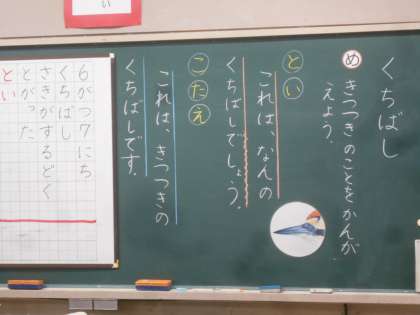 くちばし
め きつつきのことをかんが
えよう。
とい
これは、なんの
くちばしでしょう。
こたえ
これは、きつつきの
くちばしです。
6がつ7にち
くちばし
さきがするどく
とがった
とい
い